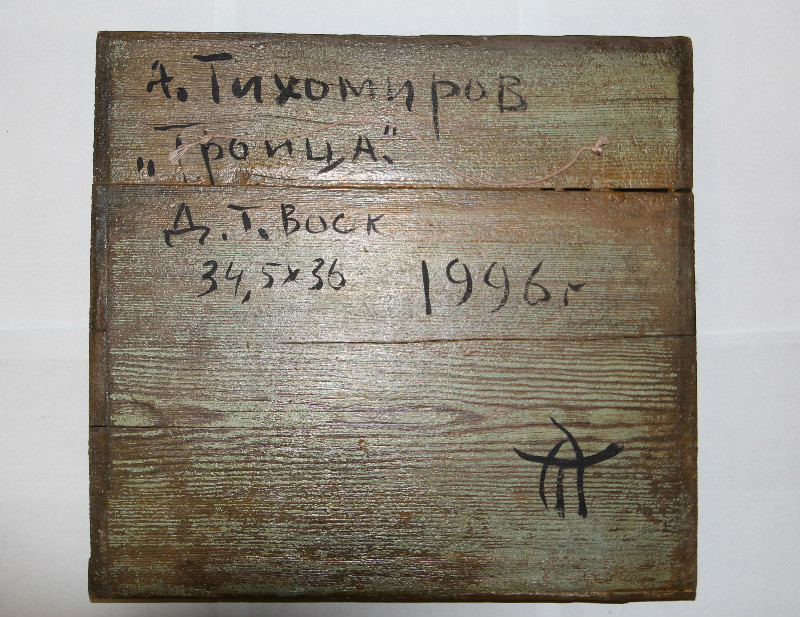 А. Тихомиров
„Троица."
Д.Т. Воск
34,5x36 1996г